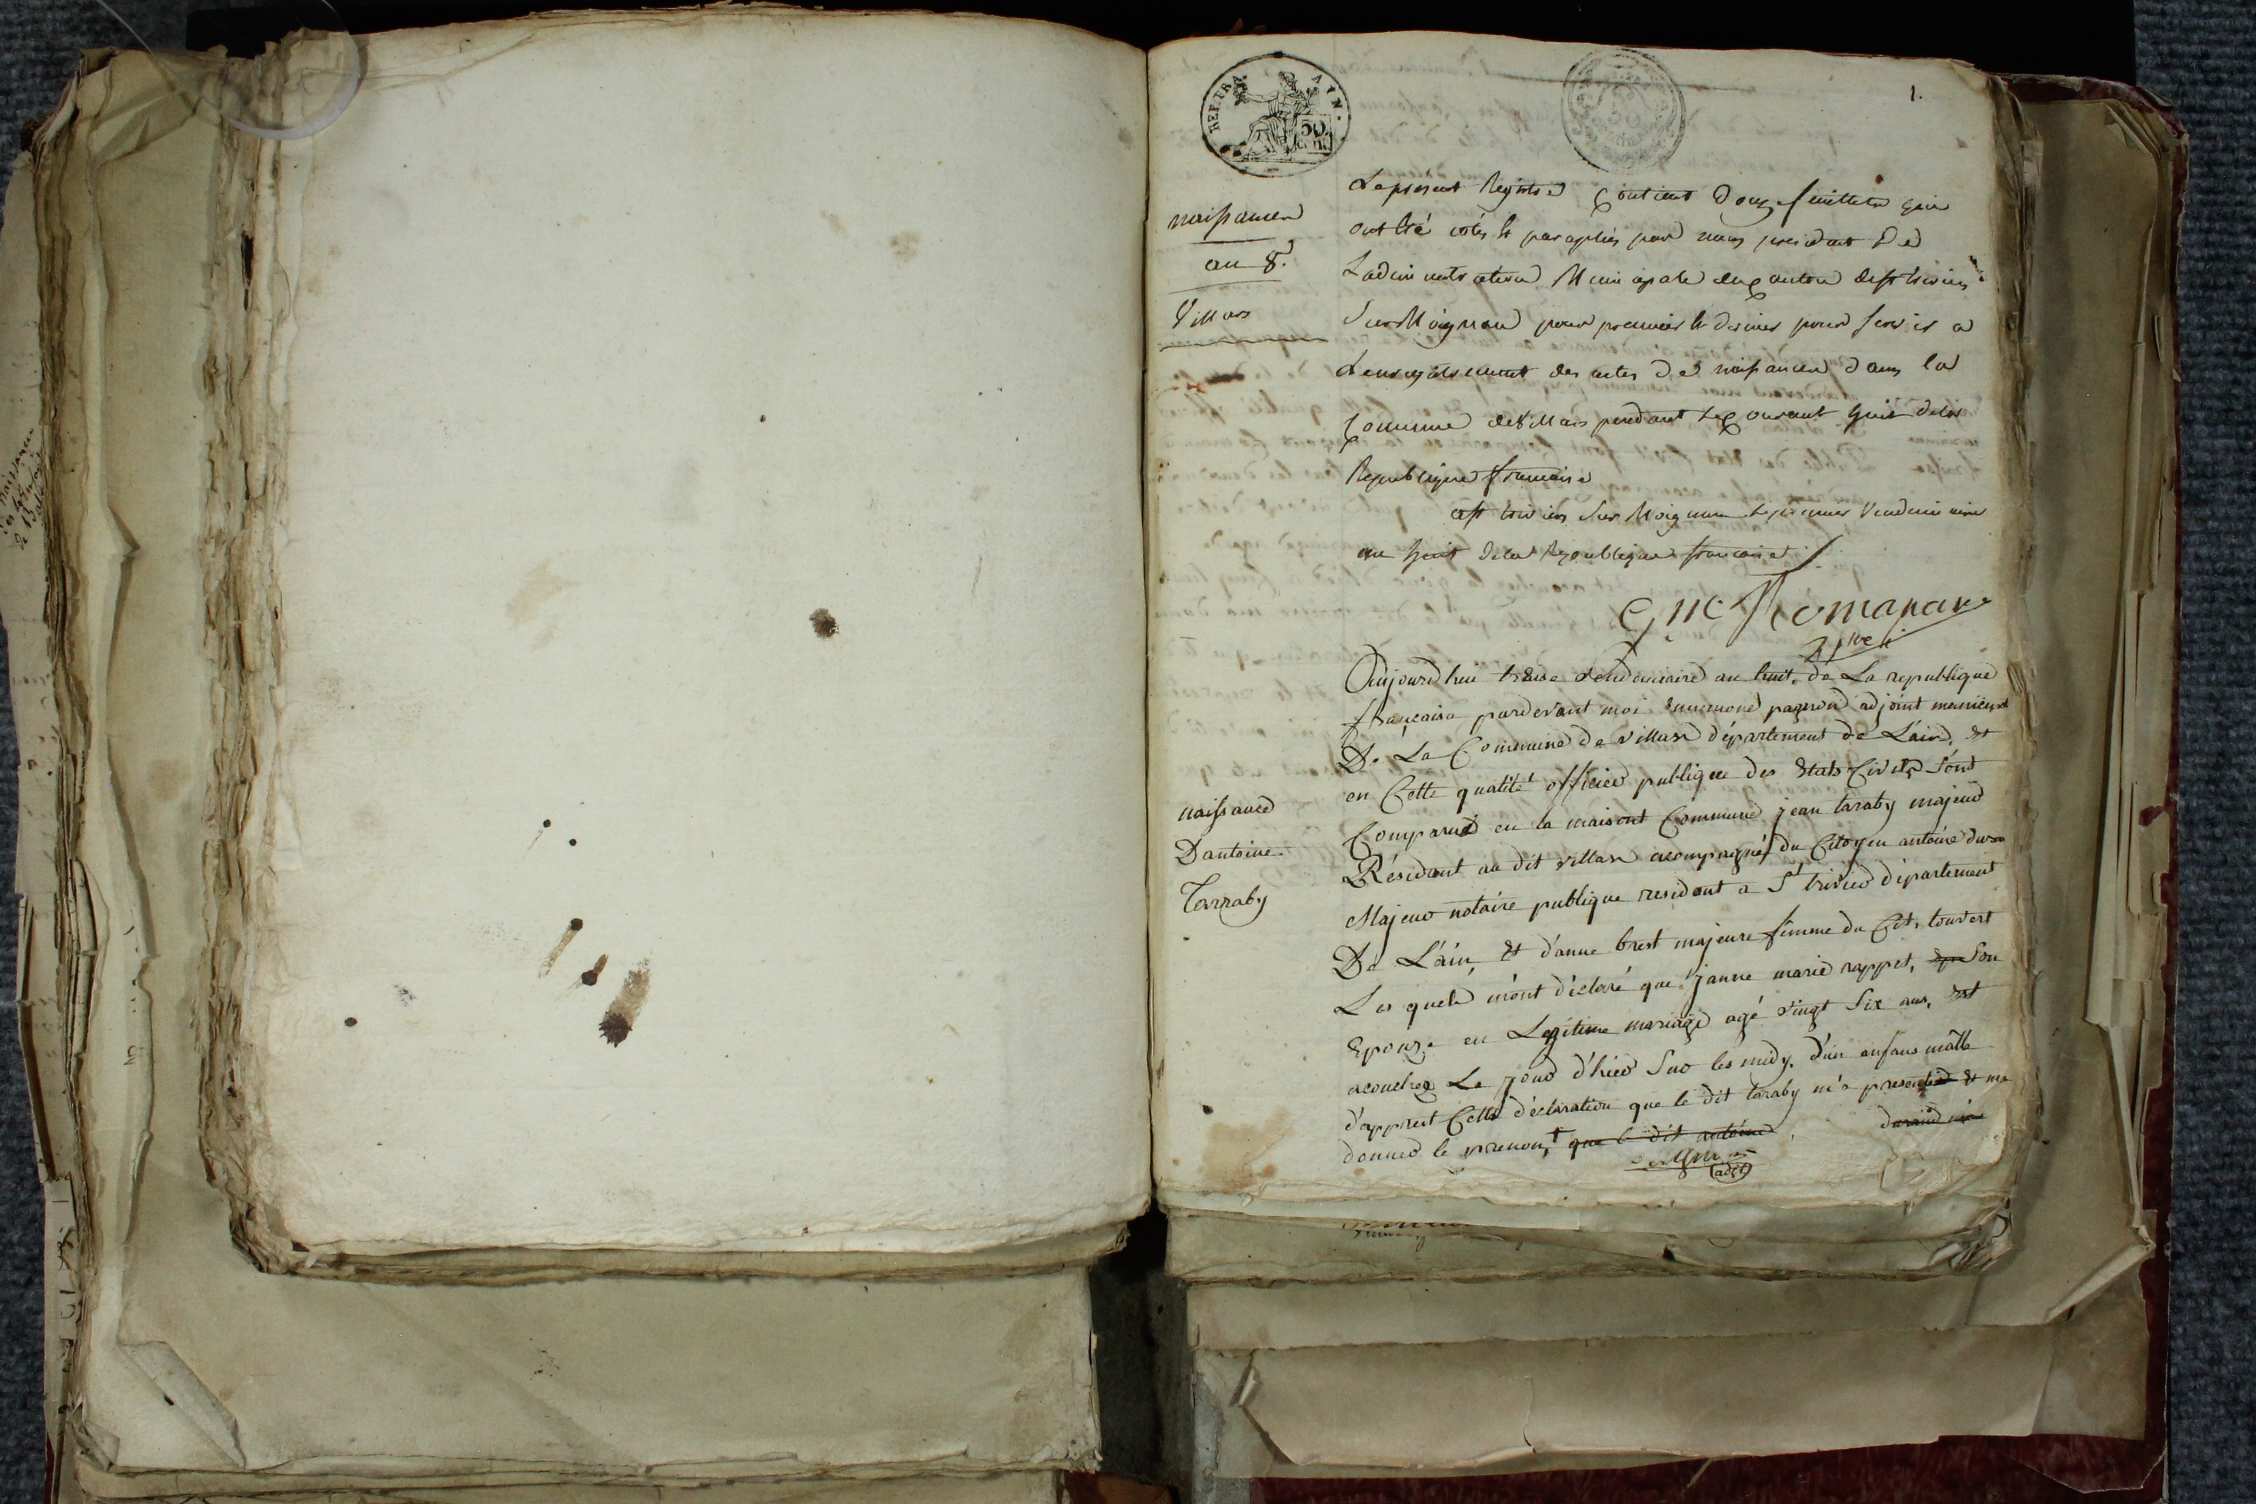 REP. FRA
AIN.
50
cent.
1.
naissances
an 8.
Villars
Le present Registre Contient douze feuillets qui
ont été cotés et paraphés par nous president De
L'administration Municipale du Canton de st trivier
Sur Moignan pour premier et dernier pour servir a
Lenregistrement des actes De naissances dans la
Commune de Villars pendant Le Courant huit de la
Republique française
a st trivier Sur Moignan le premier Vendemiaire
an huit de la Republique française
Gme Romanans
naissance
D'antoine
Tarraby
Aujourdhui treize vendemiaire an huit. de La republique
française pardevant moi pagnon adjoint
De La Commune de villars département de L'ain, Et
en Cette qualité officier publique des Etats Civils Sont
Comparue en la maisont Commune jean taraby majeur
Résidant au dit villars acompagné du Citoyen antoine
Majeur notaire publique resident a St trivier département
De L'ain, Et d'anne brest majeure femme du Cit. touvert
Les quels m'ont déclaré que janne marie rappet, Son
Epouze en Legitime mariage agé vingt Six ans, Est
acouchee Le jour d'hier Sur les midy. d'un enfans malle
d'apprest Cette déclaration que le dit taraby m'a presenté et me
donner le prenom que le dit antoine
adjt